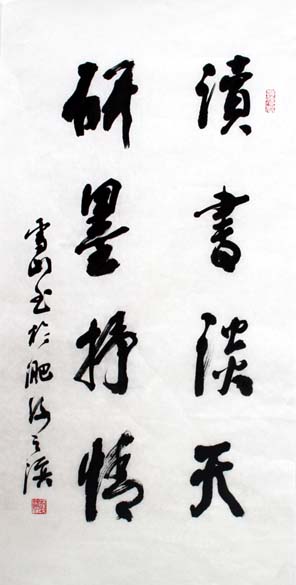 讀書談天
研墨抒情
雪山书於淝河之濱